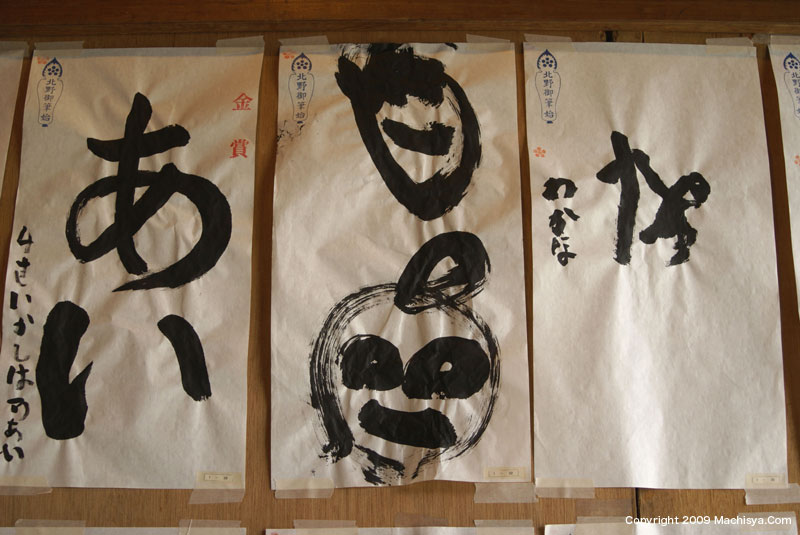 北野御筆始
金賞
あい
4さいかしはのあい
北野御筆始
北野御筆始
な
わかな
Copyright 2009 Machisya.Com